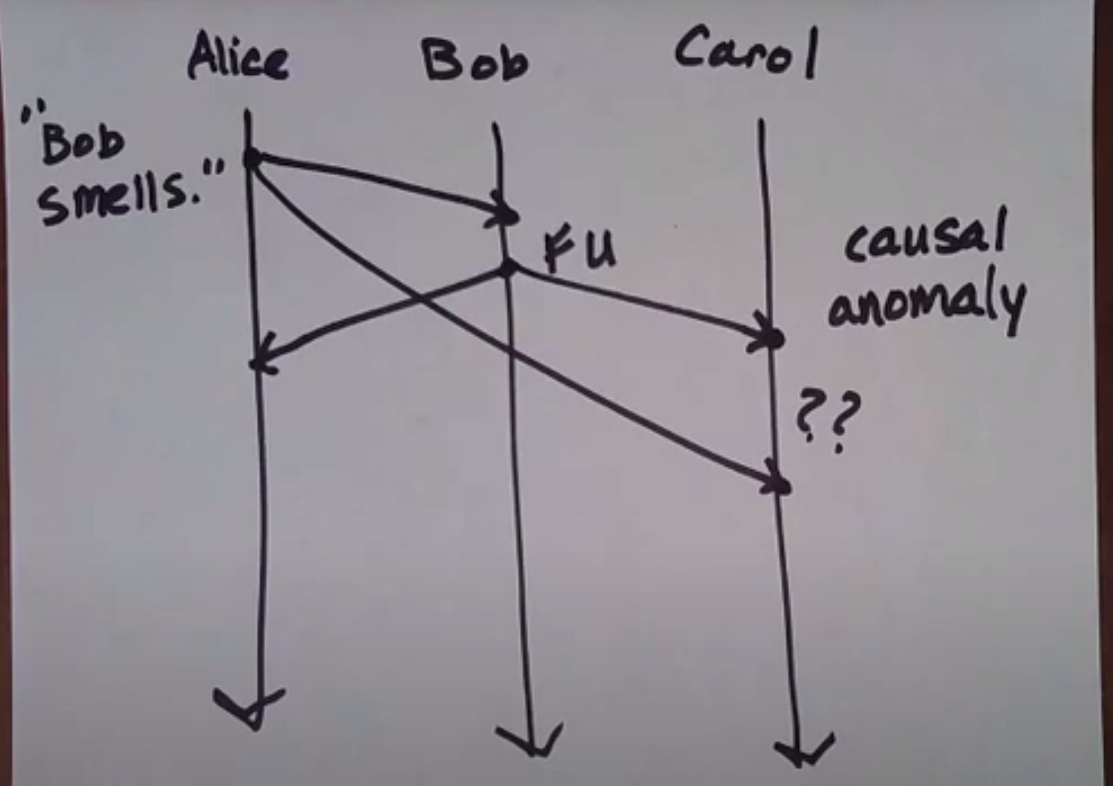 Alice Bob Carol
"Bob
smells."
FU
causal
anomaly
??